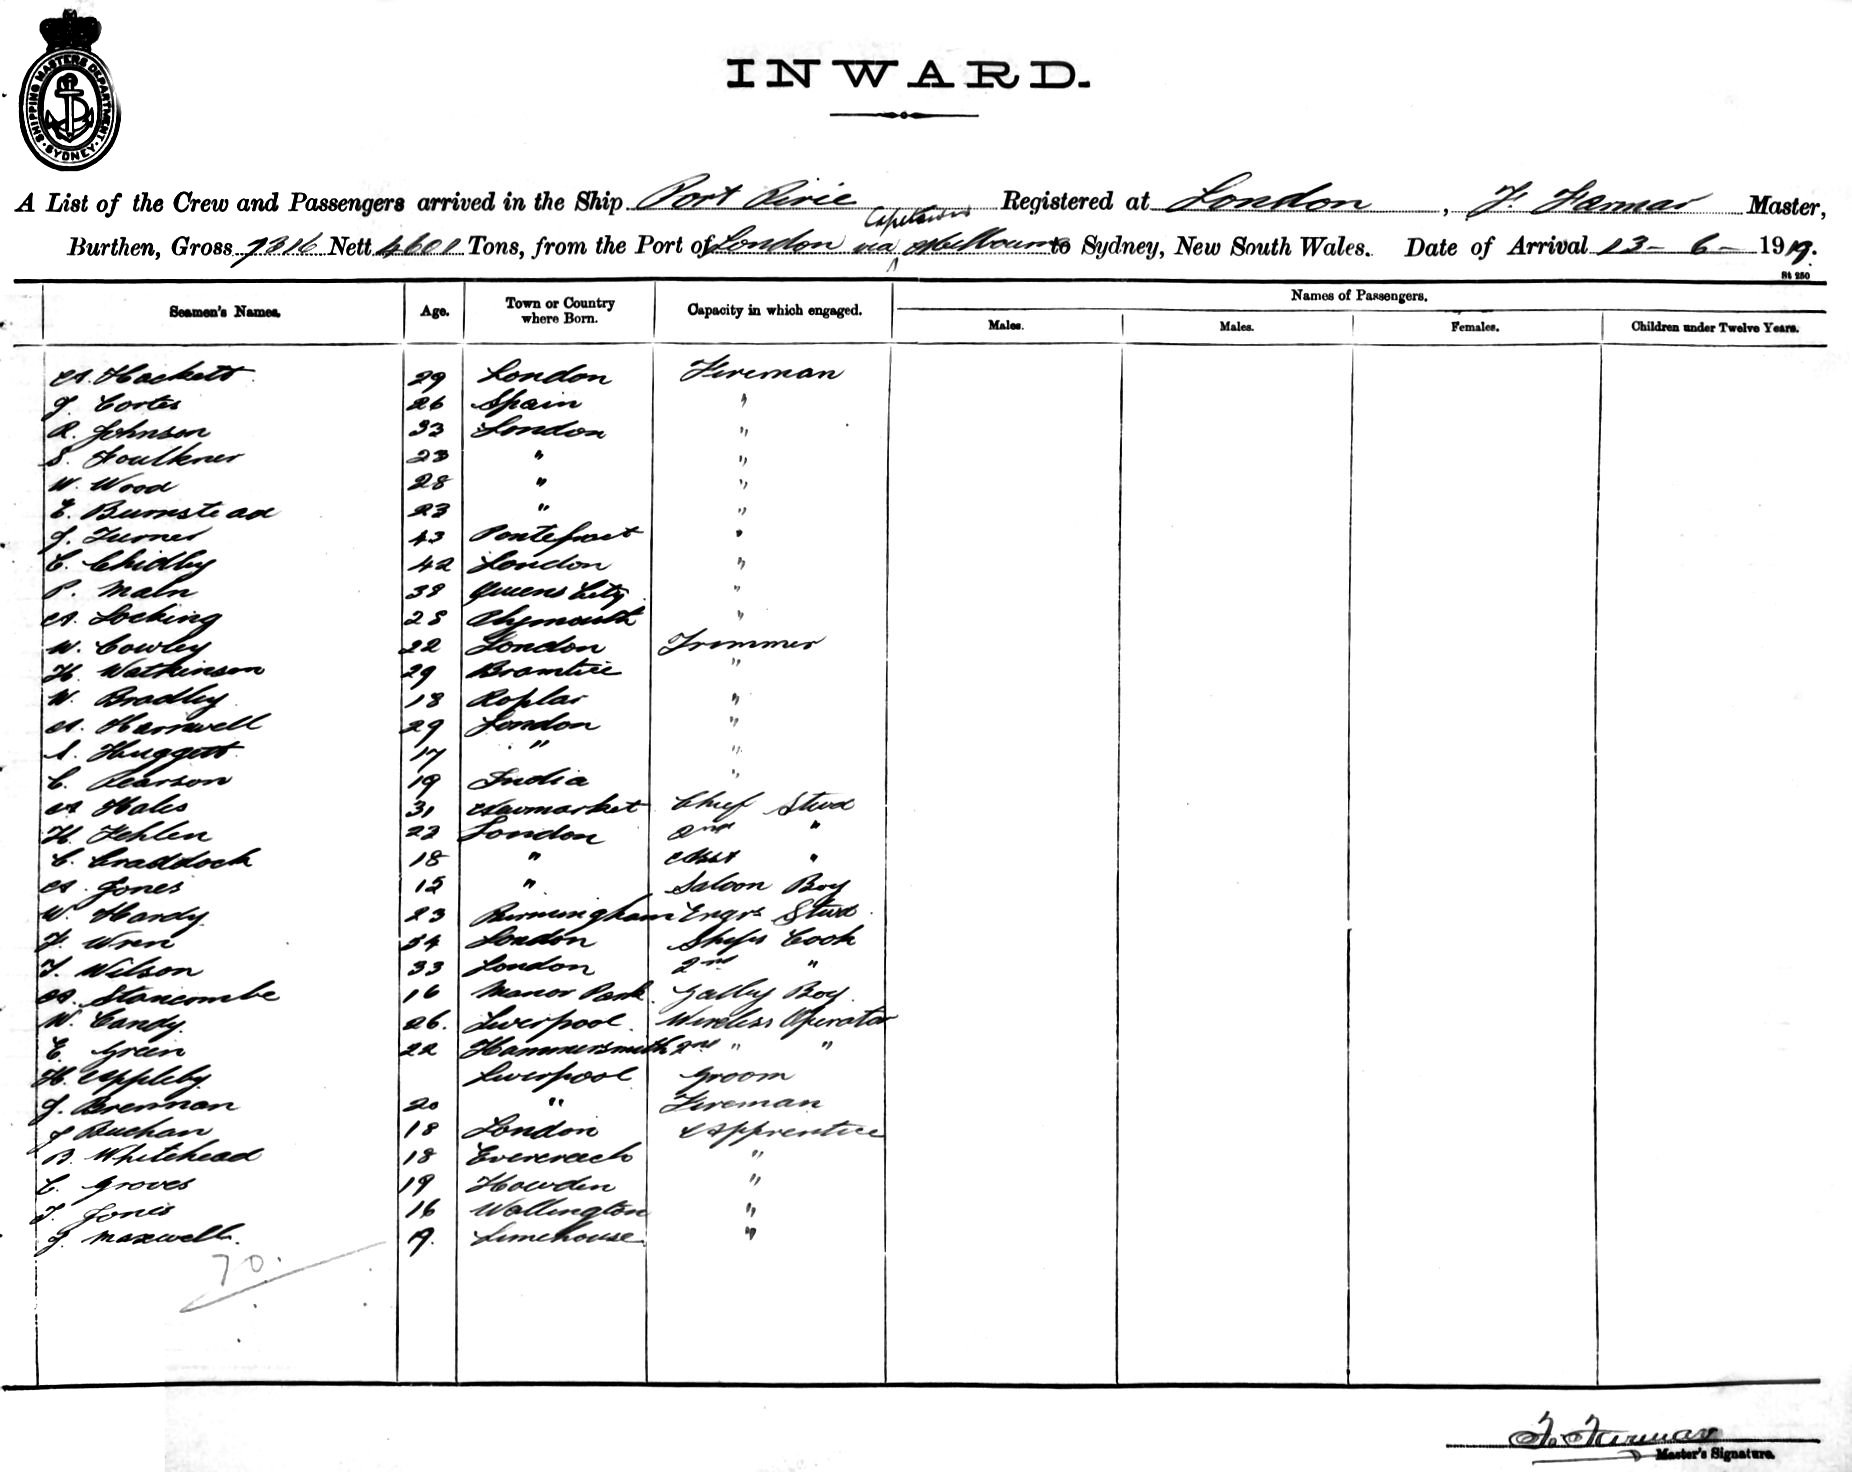 SHIPPING MASTERS DEPARTMENT · SYDNEY ·
INWARD.
A List of the Crew and Passengers arrived in the Ship Port Pirie Registered at London, F. Master,
Capetown
Burthen, Gross 7316 Nett 4601 Tons, from the Port of London via Melbourne to Sydney, New South Wales. Date of Arrival 13-6-1919.
St 250
Seamen's Names. Age. Town or Country where Born. Capacity in which engaged. Names of Passengers.
Males. Males. Females. Children under Twelve Years.
A. Hackett 29 London Fireman
J. Cortes 26 Spain "
R. Johnson 33 London "
S. Foulkner 23 " "
W. Wood 28 " "
E. Bumstead 23 " "
J. Turner 43 Pontefract "
C. Chidley 42 London "
P. Maln 38 Queens City "
A. Locking 25 Plymouth "
W. Cowley 22 London Trimmer
H. Watkinson 29 Bramtree "
W. Bradley 18 Poplar "
A. Harnwell 29 London "
S. Huggett 17 " "
C. Pearson 19 India "
A Hales 31 Newmarket Chief Stwd
H. Fehlen 22 London 2nd "
C. Craddock 18 " Asst "
A. Jones 15 " Saloon Boy
W. Hardy 23 Birmingham Engrs Stwd
F. Wren 34 London Ships Cook
T. Wilson 33 London 2nd "
A. Stancombe 16 Manor Park Galley Boy
W. Candy 26. Liverpool Wireless Operator
E. Green 22 Hammersmith 2nd " "
H. Appleby Liverpool Groom
J. Brennan 20 " Fireman
J Buchan 18 London Apprentice
B. Whitehead 18 Evercreech "
C. Groves 19 Howden "
T. Jones 16 Wallington "
J. Maxwell. 19. Limehouse "
70.
F.
Master's Signature.